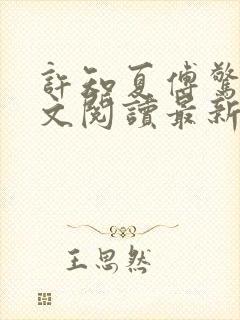 許知夏傅驚
文閱讀最新
王思然